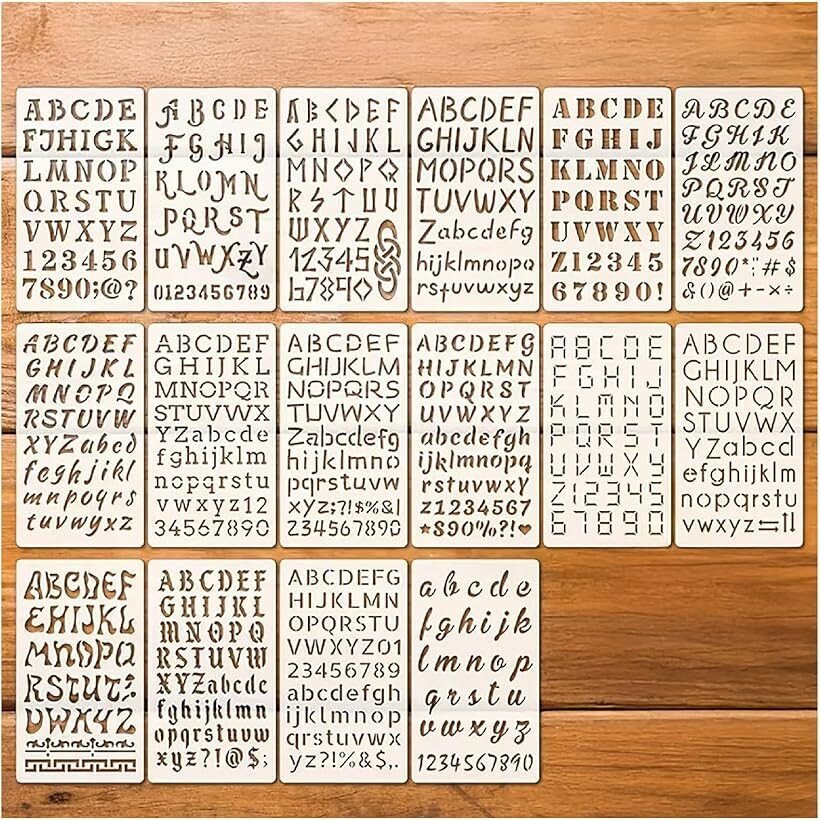 ABCDE
FJHIGK
LMNOP
QRSTU
VWXYZ
123456
7890;@?
ABCDE
FGHIJ
KLOMN
PQRST
UVWXZY
0123456789
ABCDEF
GHIJKL
MNOPQ
RSTUU
WXYZ
12345
67890
ABCDEF
GHIJKLN
MOPQRS
TUVWXY
Zabcdefg
hijklmnopq
rstuvwxyz
ABCDE
FGHIJ
KLMNO
PQRST
UVWXY
Z12345
67890!
ABCDE
FGHIK
JLMNO
PQRST
UVWXY
Z123456
7890*":#$
&()@+-×÷
ABCDEF
GHIJKL
MNOPQ
RSTUVW
XYZabcd
feghjikl
mnpoqrs
tuvwyxz
ABCDEF
GHIJKL
MNOPQR
STUVWX
YZabcde
fghijklm
nopqrstu
vwxyz12
34567890
ABCDEF
GHIJKLM
NOPQRS
TUVWXY
Zabcdefg
hijklmno
pqrstuvw
xyz;?!$%&!
234567890
ABCDEFG
HIJKLMN
OPQRST
UVWXYZ
abcdefgh
ijklmnopq
rstuvwxyz
z1234567
*890%?!♥
ABCDE
FGHIJ
KLMNO
PQRST
UVWXY
Z12345
67890
ABCDEF
GHIJKLM
NOPQR
STUVWX
YZabcd
efghijklm
nopqrstu
vwxyz⇆⇅
ABCDEF
GHIJKL
MNOPQ
RSTUT
VWXYZ
ABCDEF
GHIJKL
MNOPQ
RSTUVW
XYZabcdc
fghijklmn
opqrstuvw
xyz?!@$;
ABCDEFG
HIJKLMN
OPQRSTU
VWXYZ01
23456789
abcdefgh
ijklmnop
qrstuvwx
yz?!%&$,.
abcde
fghijk
lmnop
qrstu
vwxyz
1234567890